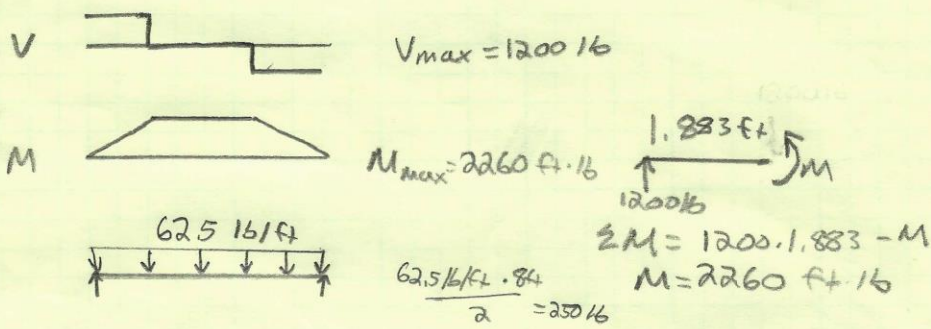 V
Vmax = 1200 lb
M
Mmax = 2260 ft·lb
1.883 ft
M
1200 lb
ΣM = 1200·1.883 - M
M = 2260 ft·lb
62.5 lb/ft
62.5 lb/ft · 8ft
2
= 250 lb